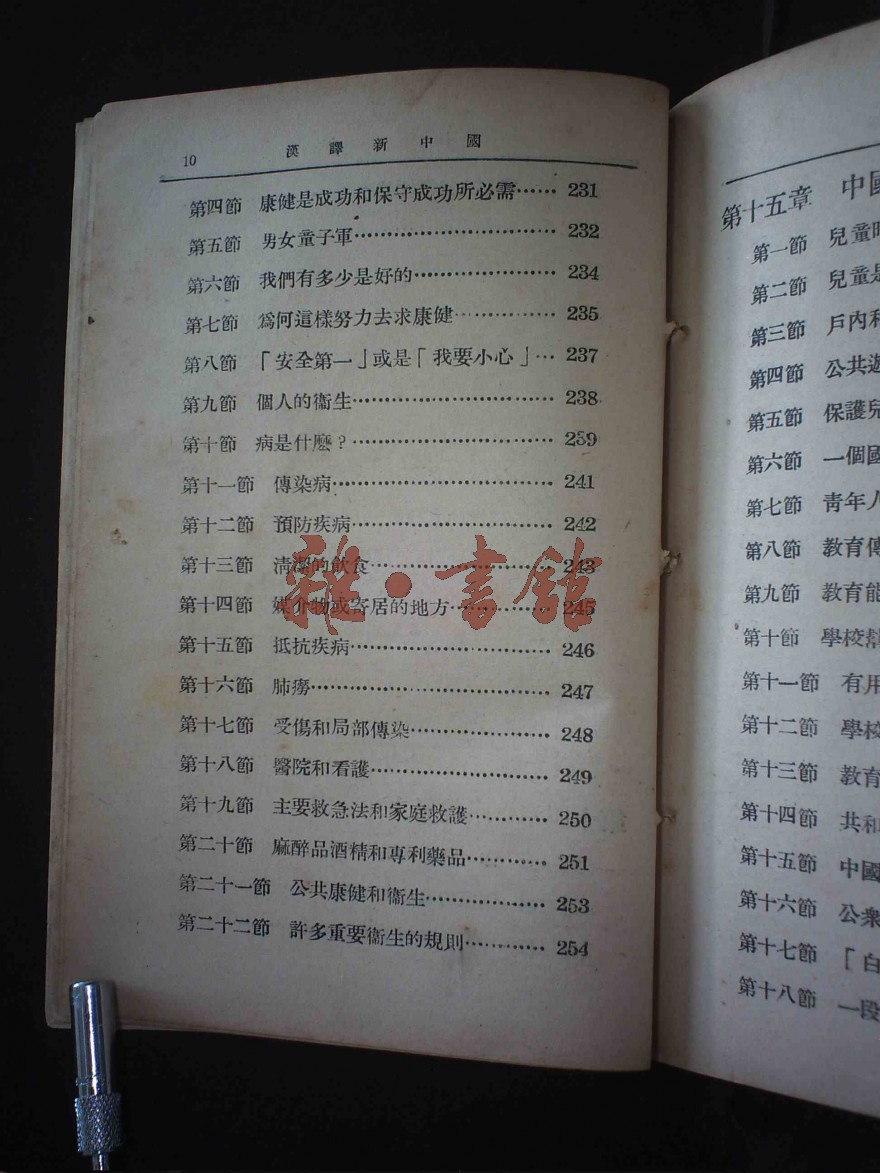 10 漢譯新中國
第四節 康健是成功和保守成功所必需…… 231
第五節 男女童子軍………………………… 232
第六節 我們有多少是好的………………… 234
第七節 爲何這樣努力去求康健…………… 235
第八節 「安全第一」或是「我要小心」… 237
第九節 個人的衞生………………………… 238
第十節 病是什麽?………………………… 239
第十一節 傳染病…………………………… 241
第十二節 預防疾病………………………… 242
第十三節 清潔的飲食……………………… 243
第十四節 媒介物或寄居的地方…………… 245
第十五節 抵抗疾病………………………… 246
第十六節 肺癆……………………………… 247
第十七節 受傷和局部傳染………………… 248
第十八節 醫院和看護……………………… 249
第十九節 主要救急法和家庭救護………… 250
第二十節 麻醉品酒精和專利藥品………… 251
第二十一節 公共康健和衞生……………… 253
第二十二節 許多重要衞生的規則………… 254
雜·書館
第十五章 中國
第一節 兒童時
第二節 兒童是
第三節 戶內和
第四節 公共遊
第五節 保護兒
第六節 一個國
第七節 靑年人
第八節 教育傳
第九節 教育能
第十節 學校幫
第十一節 有用
第十二節 學校
第十三節 教育
第十四節 共和
第十五節 中國
第十六節 公衆
第十七節 「白
第十八節 一段